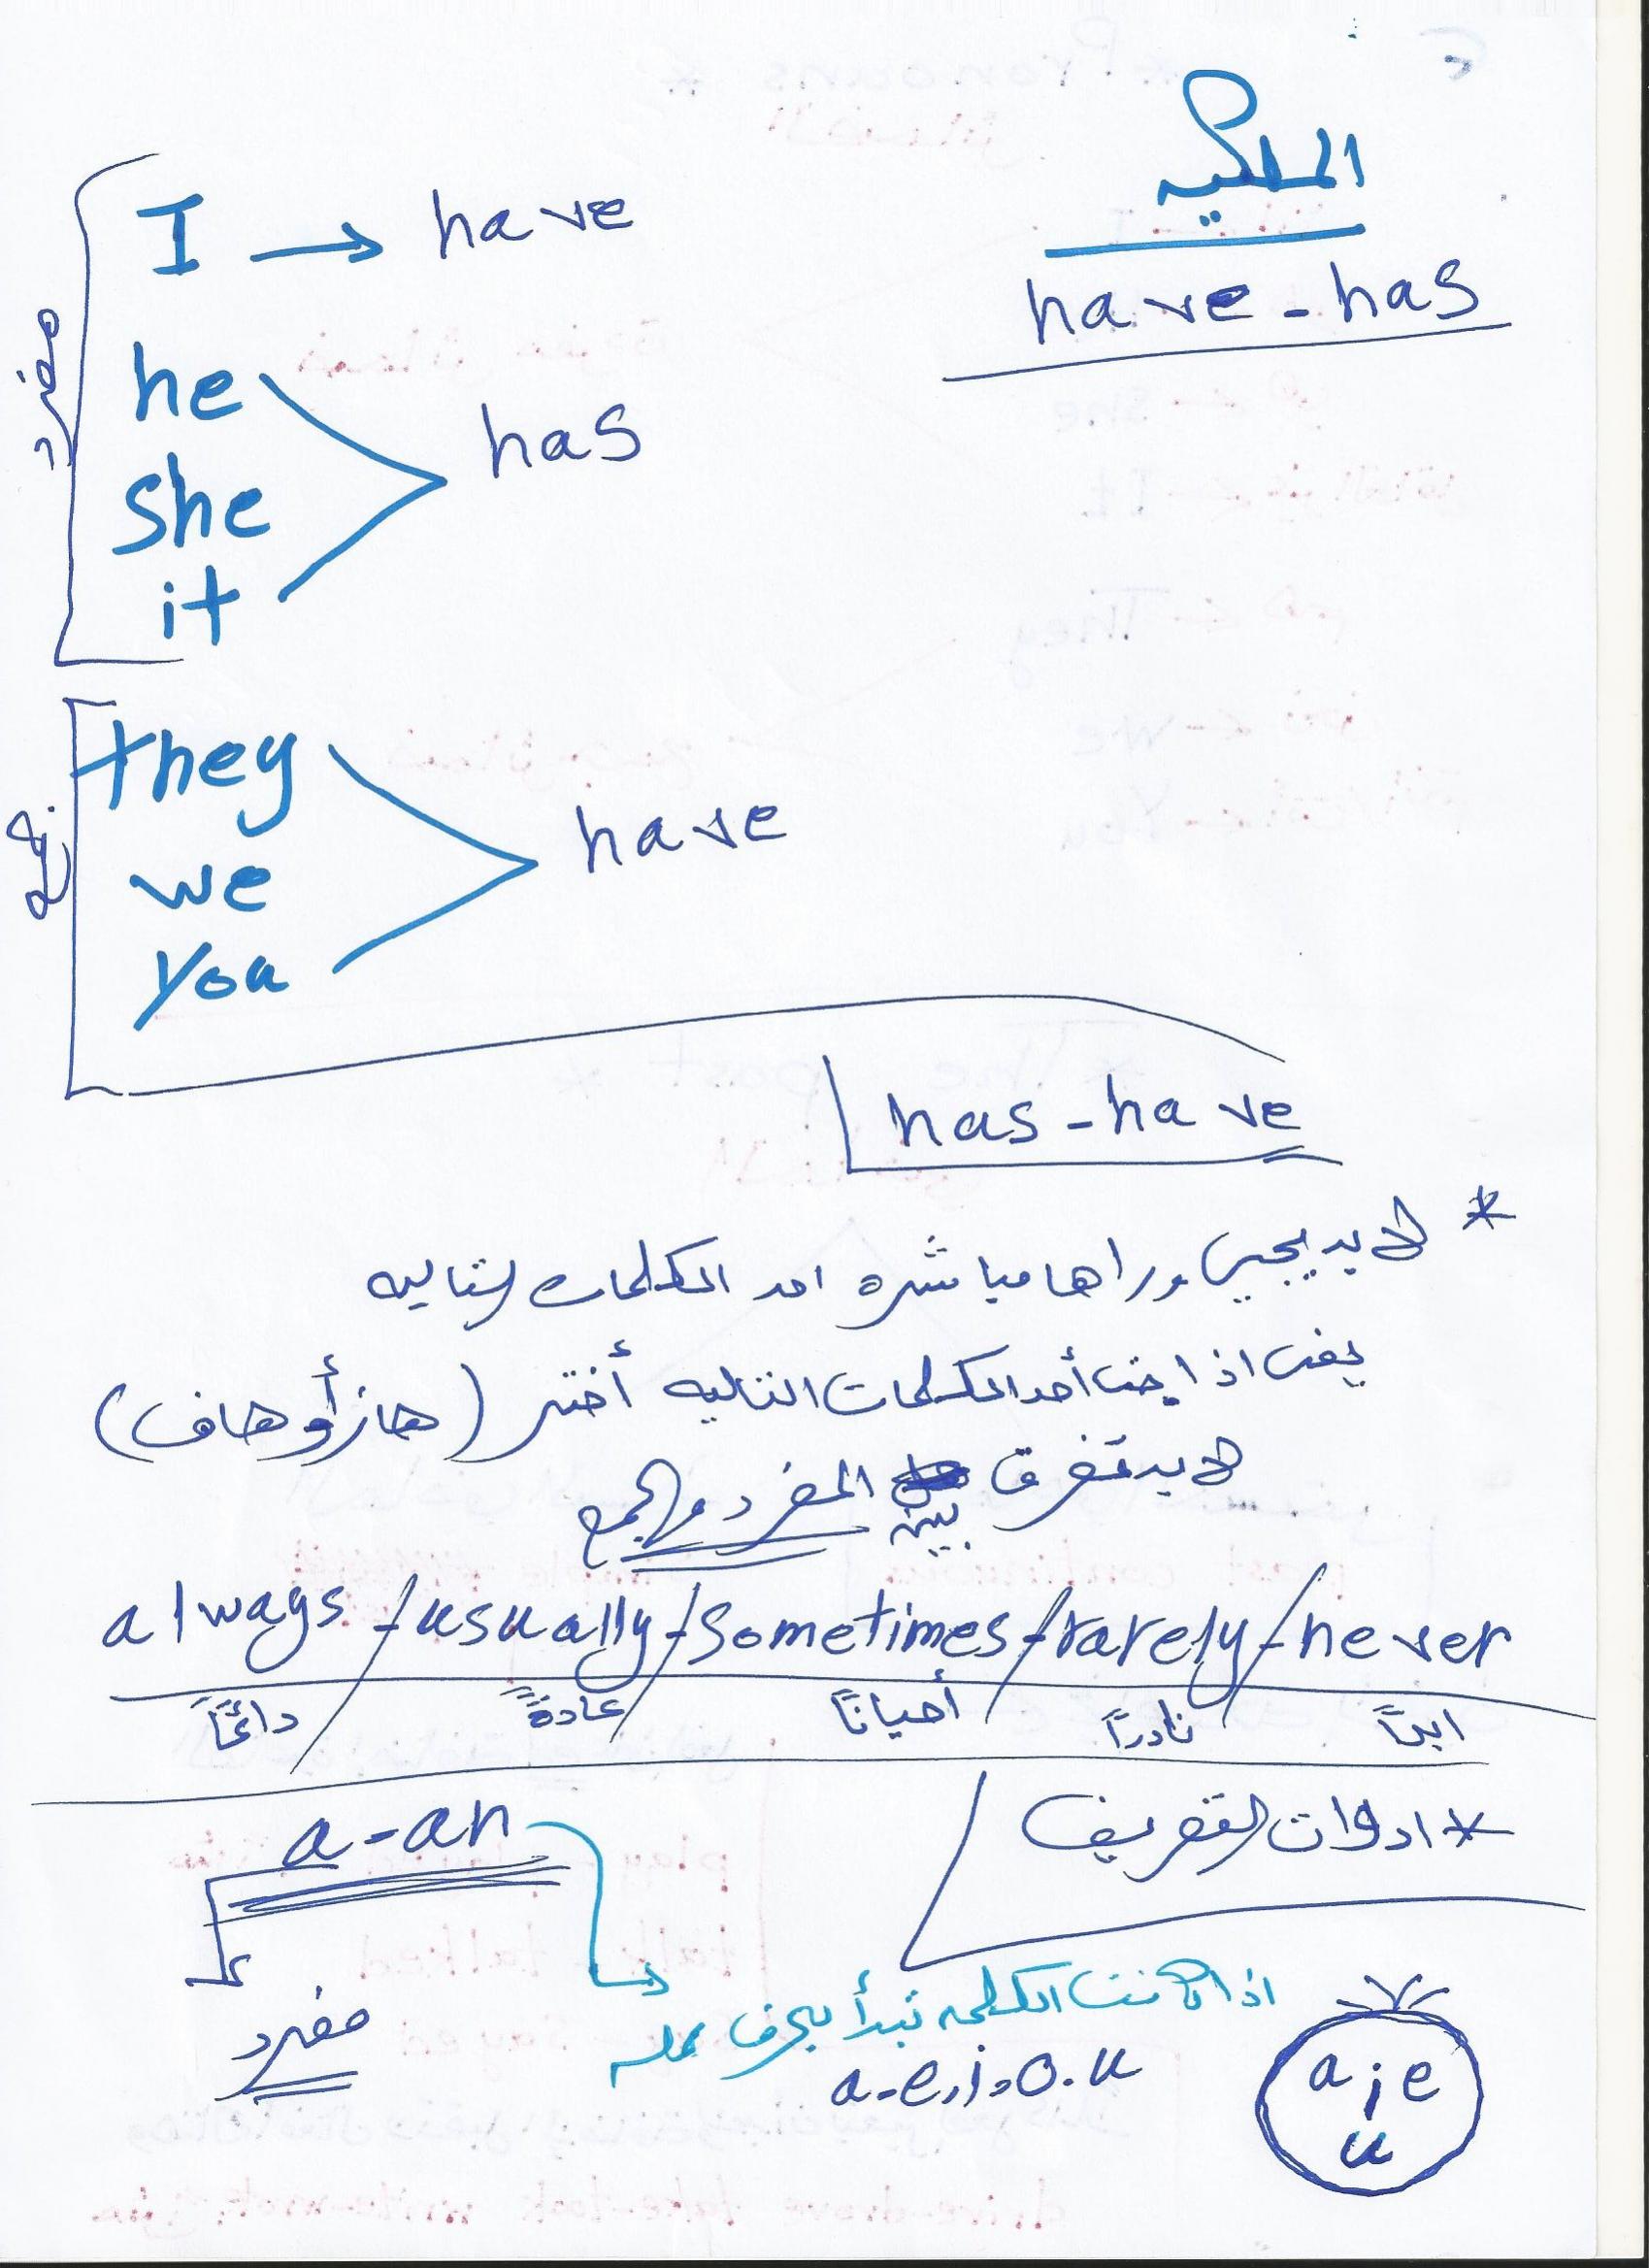 الملكيه
have - has
I → have
he
she
it
has
مفرد
they
we
you
have
جمع
has - have
* لابد يجي وراها مباشره احد الكلمات التاليه
يعني اذا جت أحد الكلمات التاليه أختر (هاز أو هاف)
لابد تفرق بين المفرد والجمع
always / usually / sometimes / rarely / never
دائماً عادةً أحياناً نادراً ابداً
* ادوات التعريف
a - an
مفرد
اذا كانت الكلمه تبدأ بحرف عله
a - e - i - o - u
a i e
u